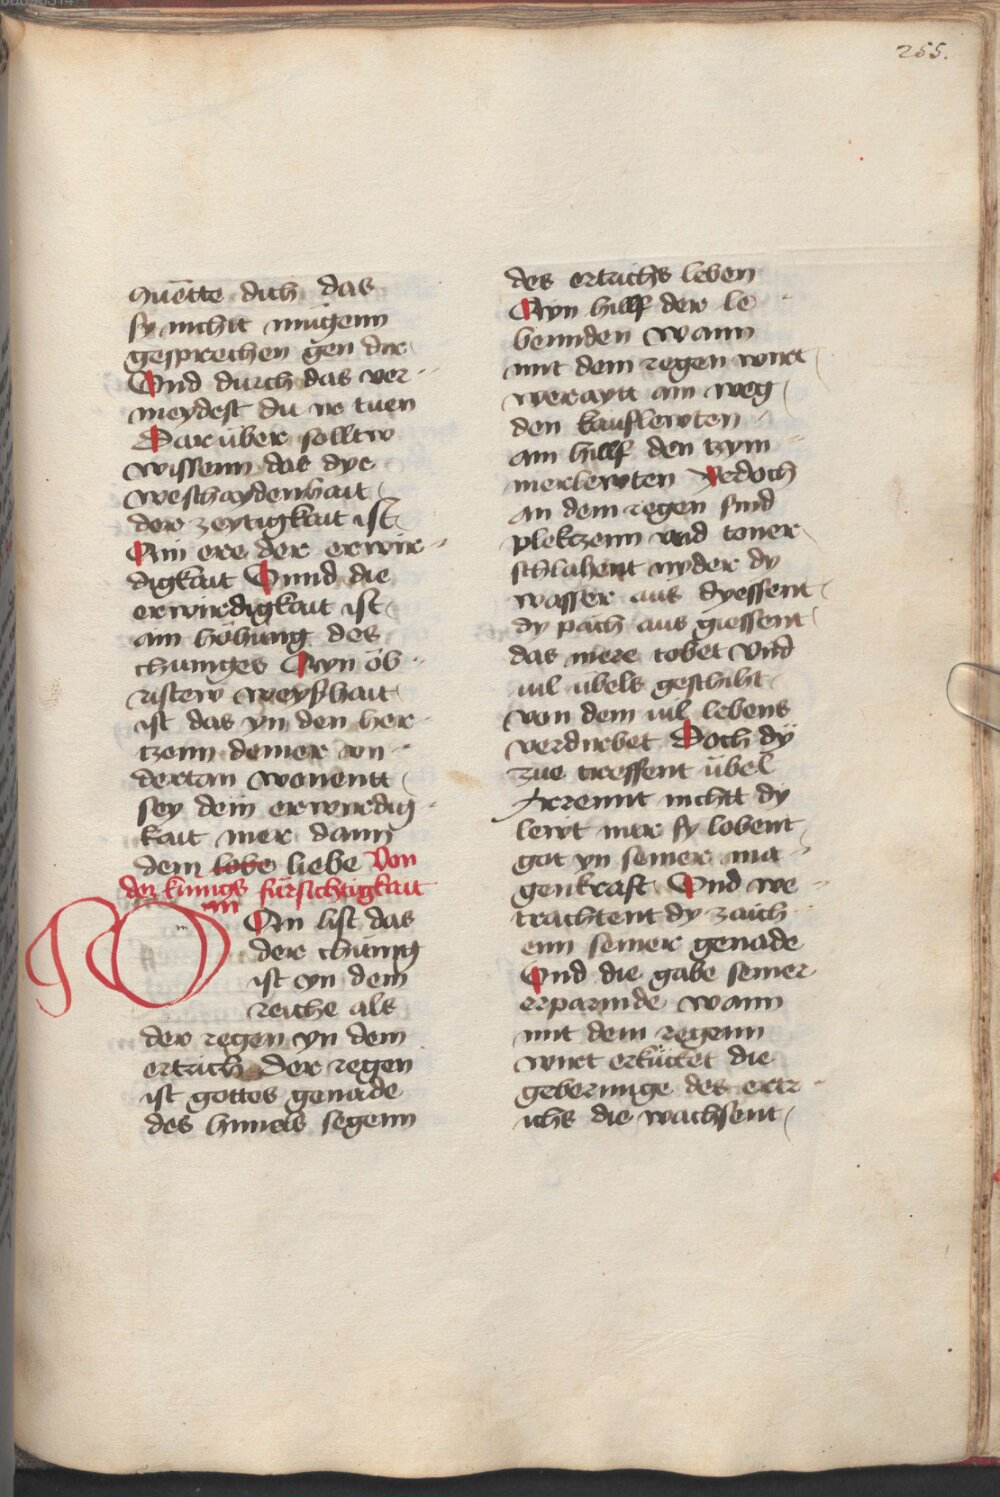 255.
quette dich das
sy nichtt mügenn
gesprechen gen dir
Und durch das ver-
meydest du ir tuen
Dar über solltw
wissenn das dye
weschaydenhait
der zeytigkait ist
Ain ere der erwir-
digkait Unnd die
erwirdigkait ist
ain höhung des
chuniges Ayn öb-
ristew weyshait
ist das yn den her-
tzenn deiner vn-
dertan wonentt
sey dein erwirdig-
kait mer dann
dem lobe liebe Von
der kunigs fürsichtigkait
MAn list das
der chünig
ist yn dem
reiche als
der regen yn dem
ertrich Der regen
ist gottes genade
des himels segenn
des ertrichs leben
Ayn hillf der le-
bennden wann
mit dem regen wirt
weraytt ain weg
den kauflewten
ain hillf den tzym-
merlewten Yedoch
an dem regen sind
plektzenn vnd toner
schlahent nyder dy
wasser aus dyessent
dy päch aus giessent
das mere tobet Vnd
uil übels geschiht
von dem uil lebens
verdirbet Doch dÿ
zue treffent übel
Irrennt nichtt dy
lewt mer sy lobent
got yn seiner ma-
genkraft Vnd we-
trachtent dy zaich-
enn seiner genade
Und die gabe seiner
erparmde wann
mit dem regenn
wirt erkücket die
geberunge des ertr-
ichs die wachsent